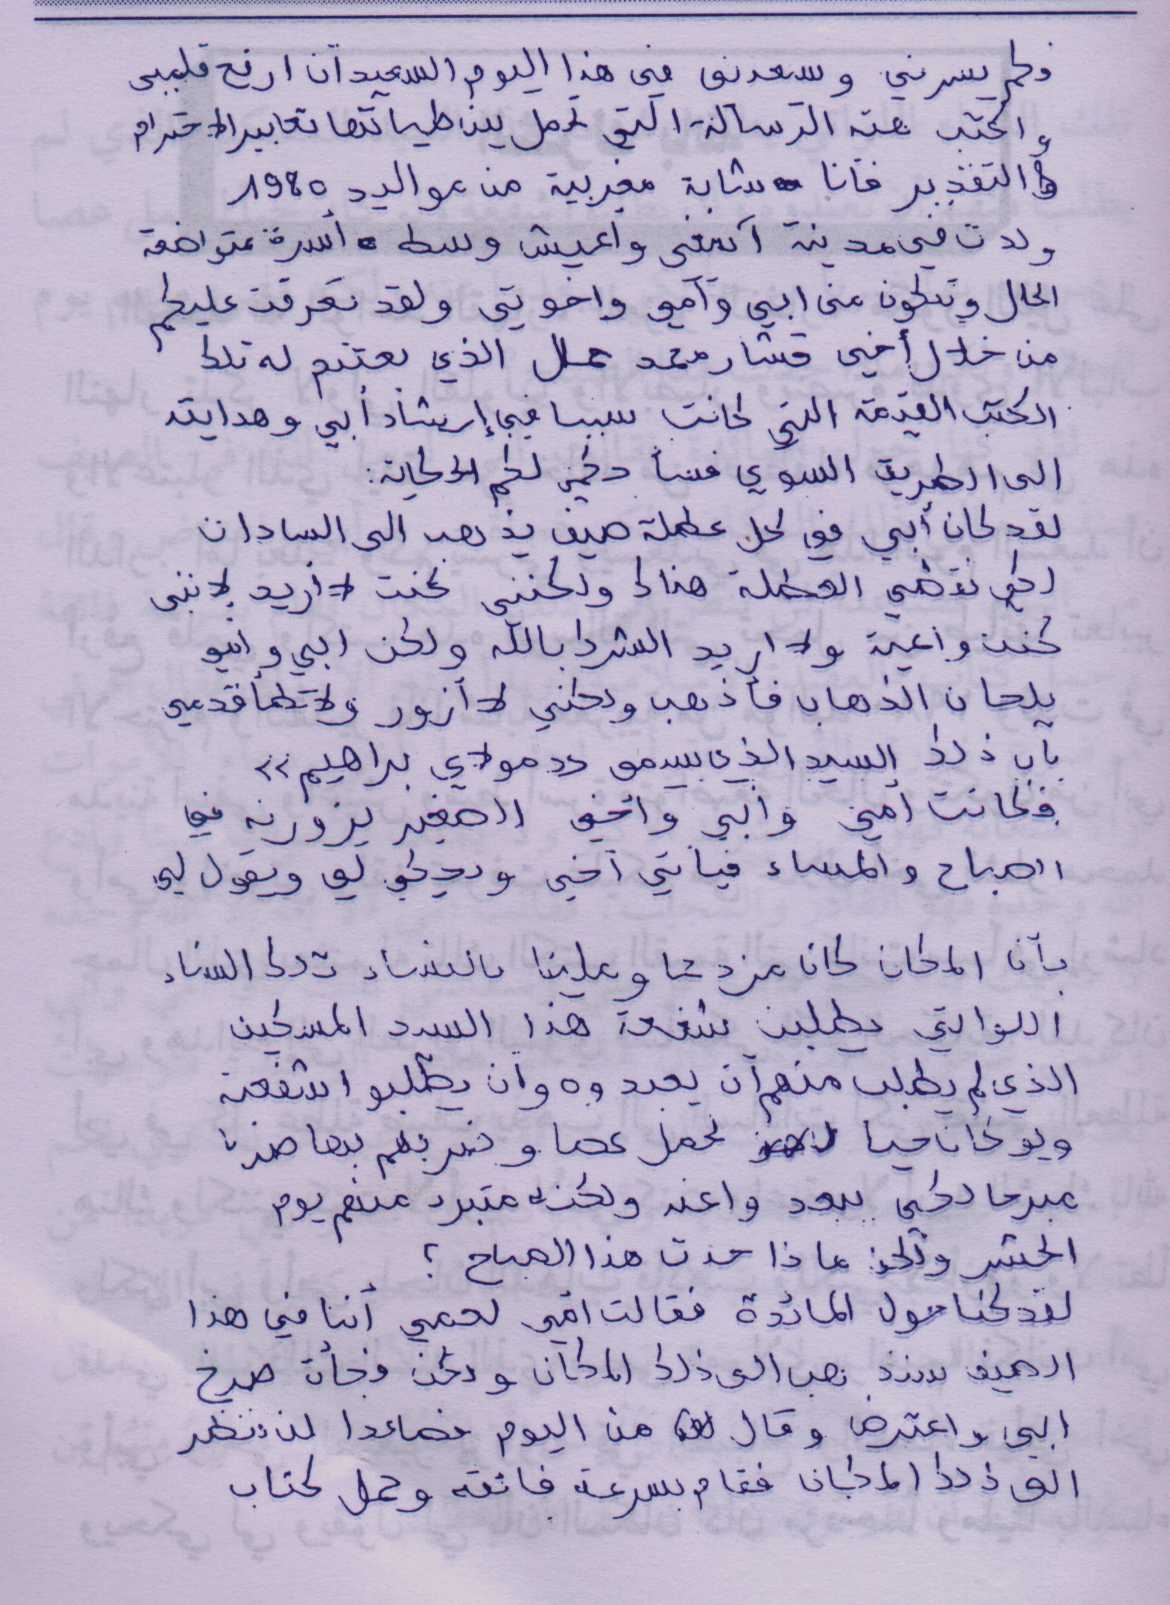 ولكم يسرني وسعدني في هذا اليوم السعيد أن ارفع قلمي
واكتب هته الرسالة التي تحمل بين طياتها تعابير الاحترام
والتقدير فأنا شابة مغربية من مواليد 1980
ولدت في مدينة آسفي واعيش وسط أسرة متواضعة
الحال وتتكون من ابي وآمي واخوتي ولقد تعرفت عليكم
من خلال أخي قشار محمد الذي بعتتم له تلك
الكتب القيمة التي كانت سببا في إرشاد أبي وهدايته
الى الطريق السوي فسأ حكي لكم الحكاية:
لقد كان أبي في كل عطلة صيف يذهب الى السادات
لكي نقضي العطلة هناك ولكنني كنت لا أريد لانني
كنت واعية ولا اريد الشرك بالله ولكن ابي وأمي
يلحان الذهاب فأذهب ولكنني لا أزور ولا تطأ قدمي
باب ذلك السيد الذي يسمى «مولاي براهيم»
فكانت أمي وأبي وأخي الصغير يزورنه في
الصباح والمساء فيأتي أخي ويحكي لي ويقول لي
بأن المكان كان مزدحما ومليئا بالنساء تلك النساء
اللواتي يطلبن شفعة هذا السيد المسكين
الذي لم يطلب منهم آن يعبدوه وآن يطلبو اشفعته
ويو كان حيا لحمل عصا وضربهم بها ضربا
مبرحا لكي يبعد واعنه ولكنه متبرد منهم يوم
الحشر ولكن ماذا حدت هذا الصباح ؟
لقد كنا حول المائدة فقالت امي لعمي أننا في هذا
الصيف سنذهب الى ذلك المكان ولكن فجأة صرخ
ابي واعترض وقال من اليوم فصاعدا لن ننظر
الى ذلك المكان فقام بسرعة فائقة وحمل كتاب